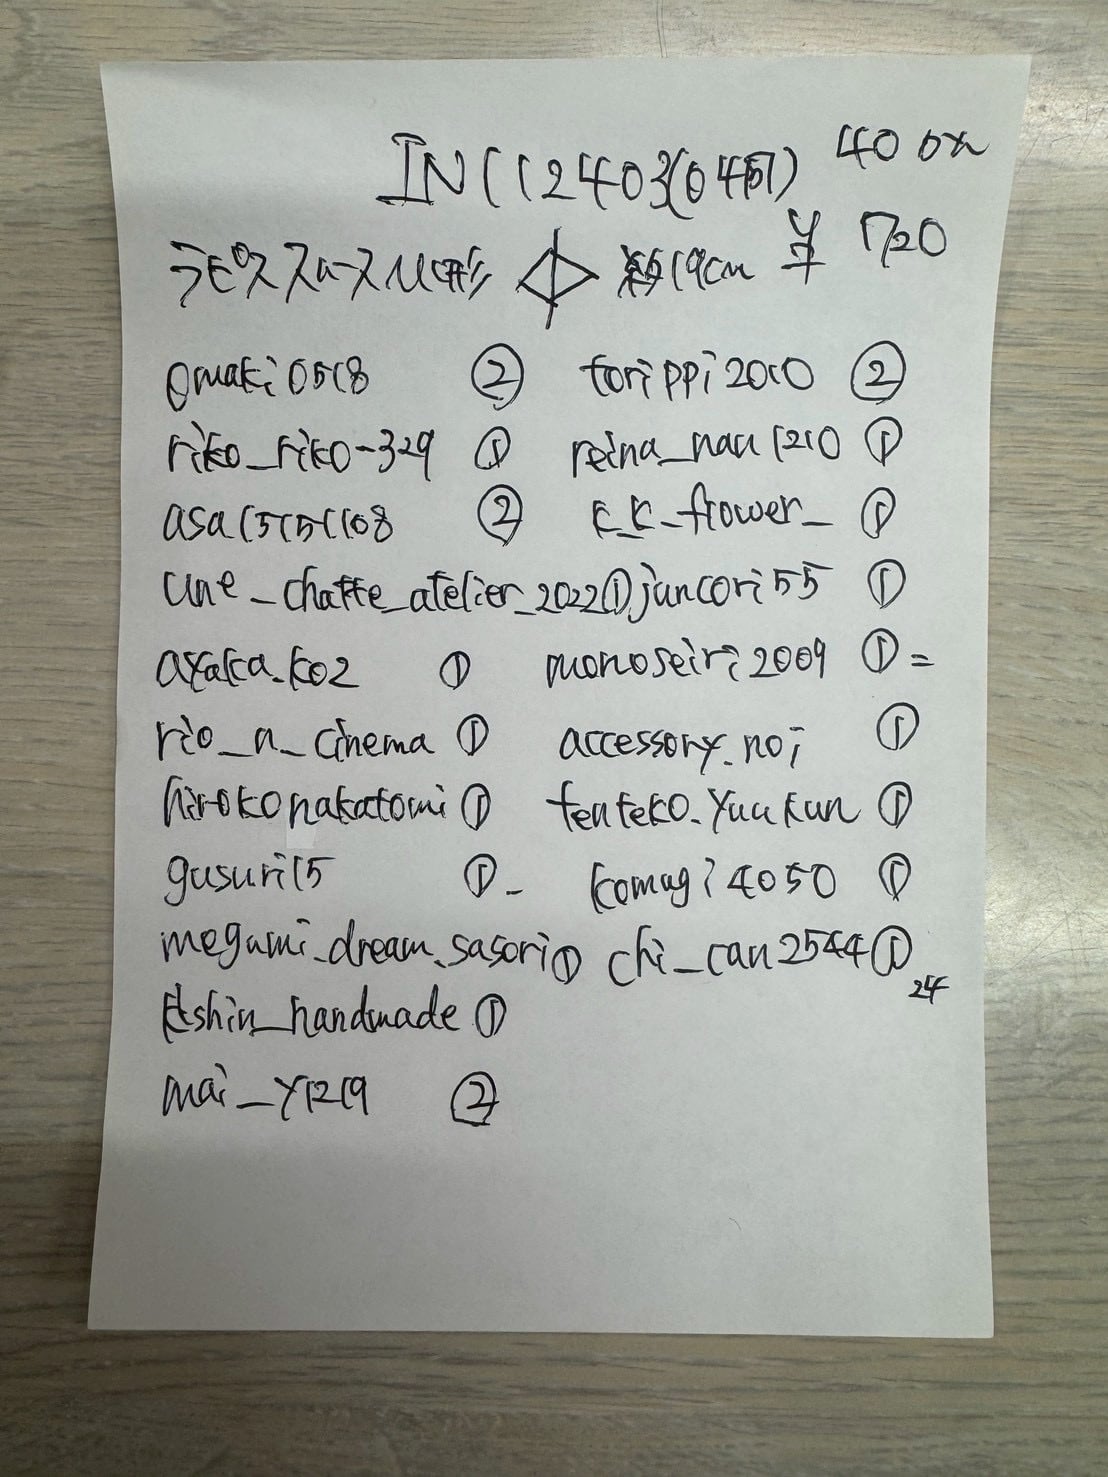 IN112403(0457) 400x
ラピススムース山形 約19cm ¥1720
omaki0518 ② torippi2010 ②
riko_riko-329 ① reina_nau1210 ①
asa15151108 ② k_k_frower_ ①
une_chatte_atelier_2022① juncori55 ①
ayaka.ko2 ① monoseiri2009 ①=
rio_n_cinema ① accessory.noi ①
hirokonakatomi ① tenteko.yuukun ①
gusuri15 ①- komugi4050 ①
megumi_dream.sasori① chi_can2544①
24
k_shin_handmade ①
mai_y1219 ②